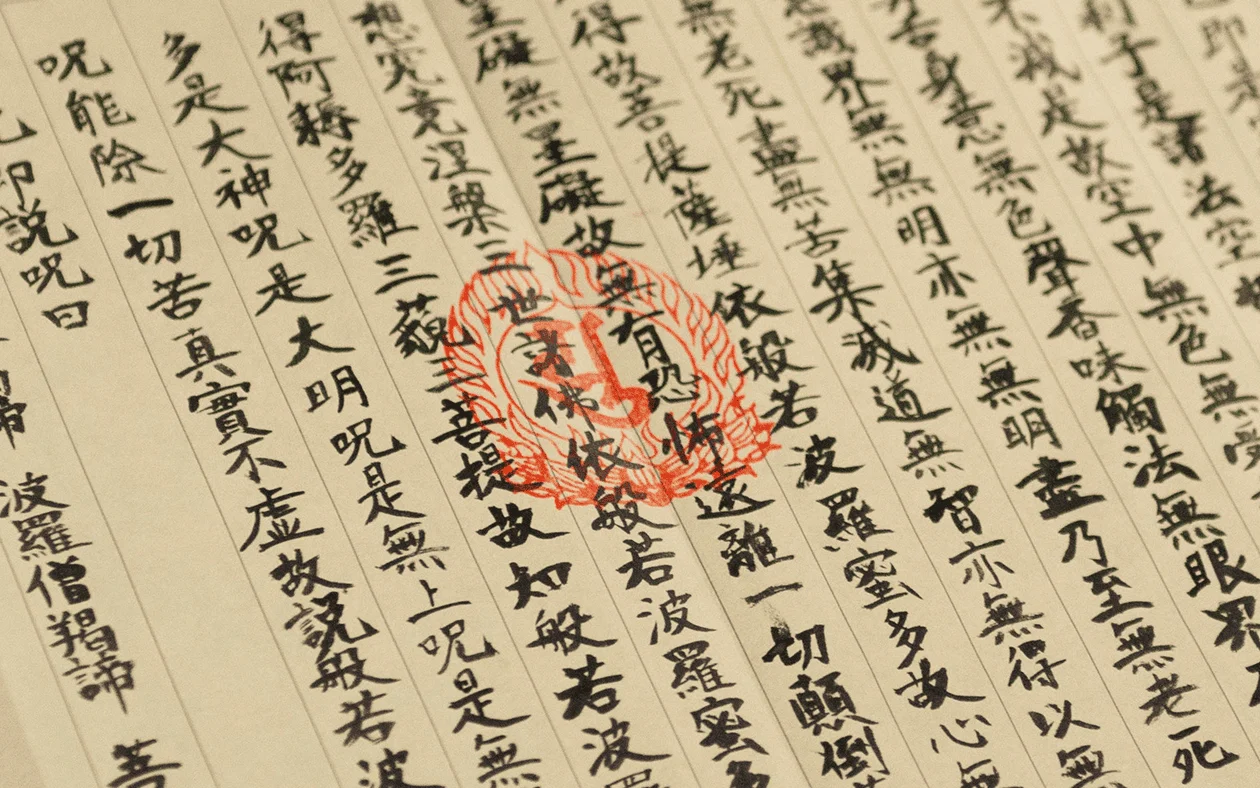 即是
利子是諸法空
不減是故空中無色無受
舌身意無色聲香味觸法無眼界
識界無無明亦無無明盡乃至無老死
無老死盡無苦集滅道無智亦無得以無
得故菩提薩埵依般若波羅蜜多故心無
罣礙無罣礙故無有恐怖遠離一切顛倒
想究竟涅槃三世諸佛依般若波羅蜜多
得阿耨多羅三藐三菩提故知般若波羅
多是大神呪是大明呪是無上呪是無
呪能除一切苦真實不虛故説般若波
即説呪曰
諦 波羅僧羯諦 菩